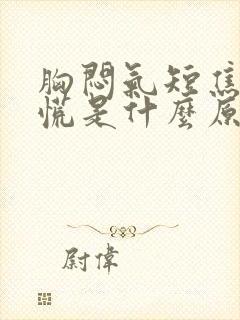 胸悶氣短焦
慌是什麼原
尉偉